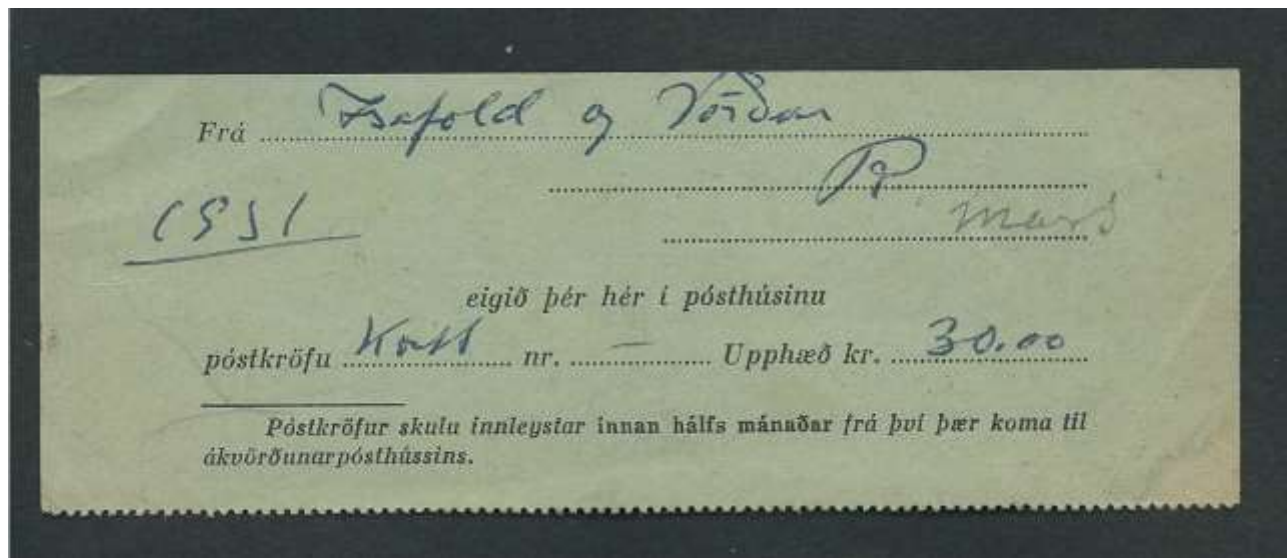 Frá Isafold og Vörður
R
mars
1951
eigið þér hér í pósthúsinu
póstkröfu Kort nr. — Upphæð kr. 30.00
Póstkröfur skulu innleystar innan hálfs mánaðar frá því þær koma til
ákvörðunarpósthússins.